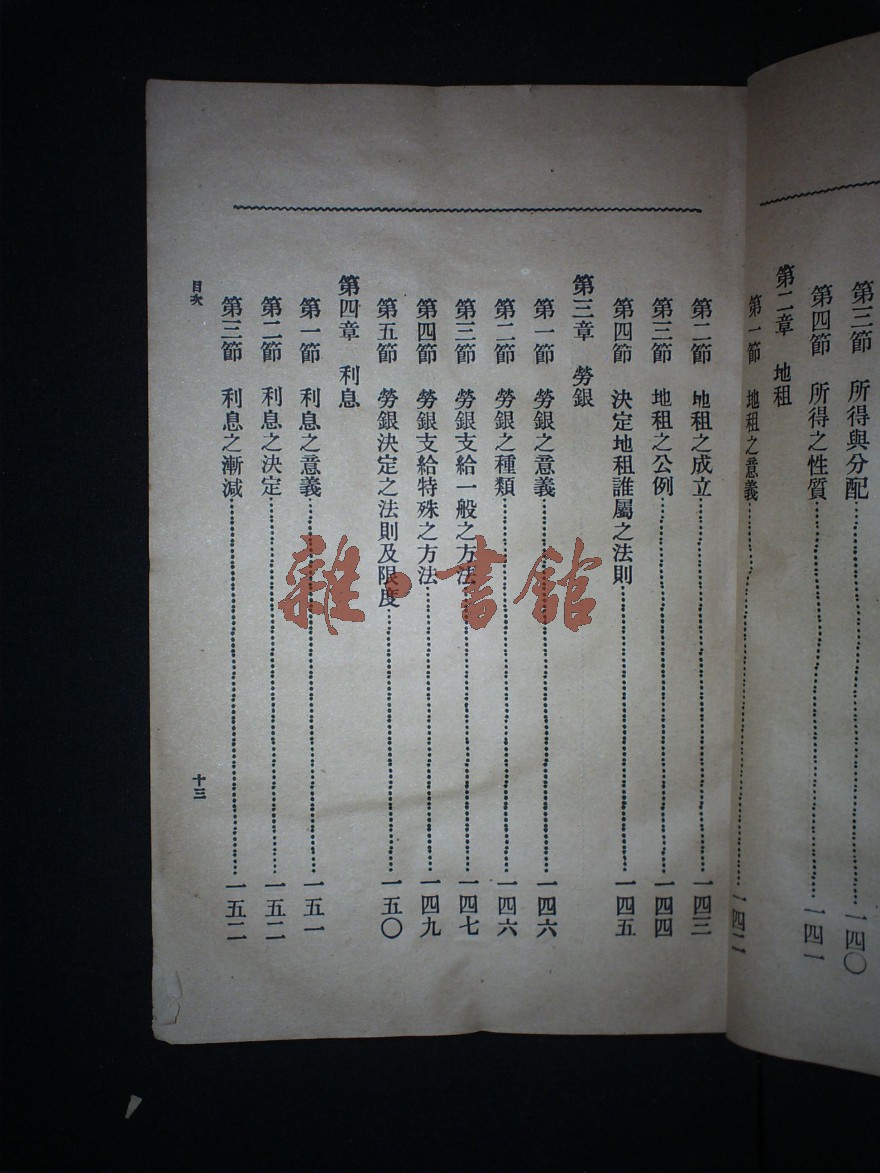 第三節　所得與分配……一四〇
第四節　所得之性質……一四一
第二章　地租
第一節　地租之意義……一四二
第二節　地租之成立……一四三
第三節　地租之公例……一四四
第四節　決定地租誰屬之法則……一四五
第三章　勞銀
第一節　勞銀之意義……一四六
第二節　勞銀之種類……一四六
第三節　勞銀支給一般之方法……一四七
第四節　勞銀支給特殊之方法……一四九
第五節　勞銀決定之法則及限度……一五〇
第四章　利息
第一節　利息之意義……一五一
第二節　利息之決定……一五二
第三節　利息之漸減……一五二
目次　十三
雜·書館